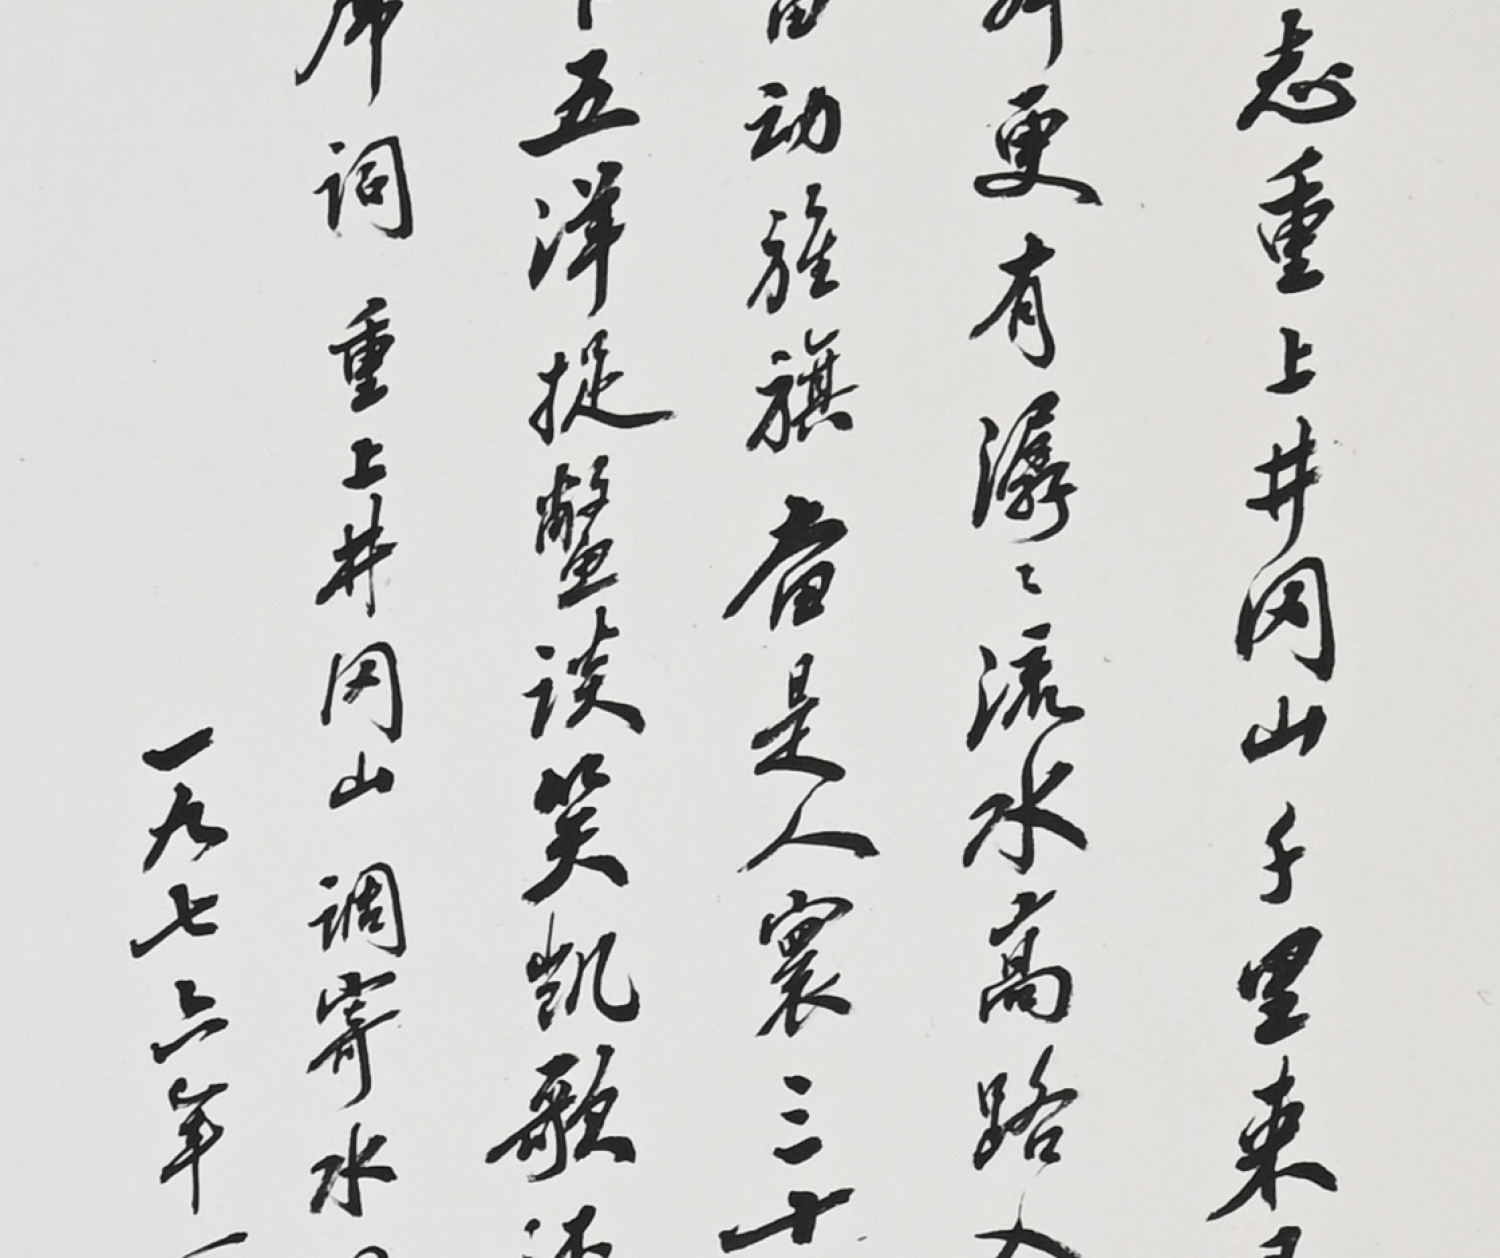 志重上井冈山千里来
更有潺〻流水高路入
动旌旗奋是人寰三十
五洋捉鳖谈笑凯歌还
席词重上井冈山调寄水
一九七六年一